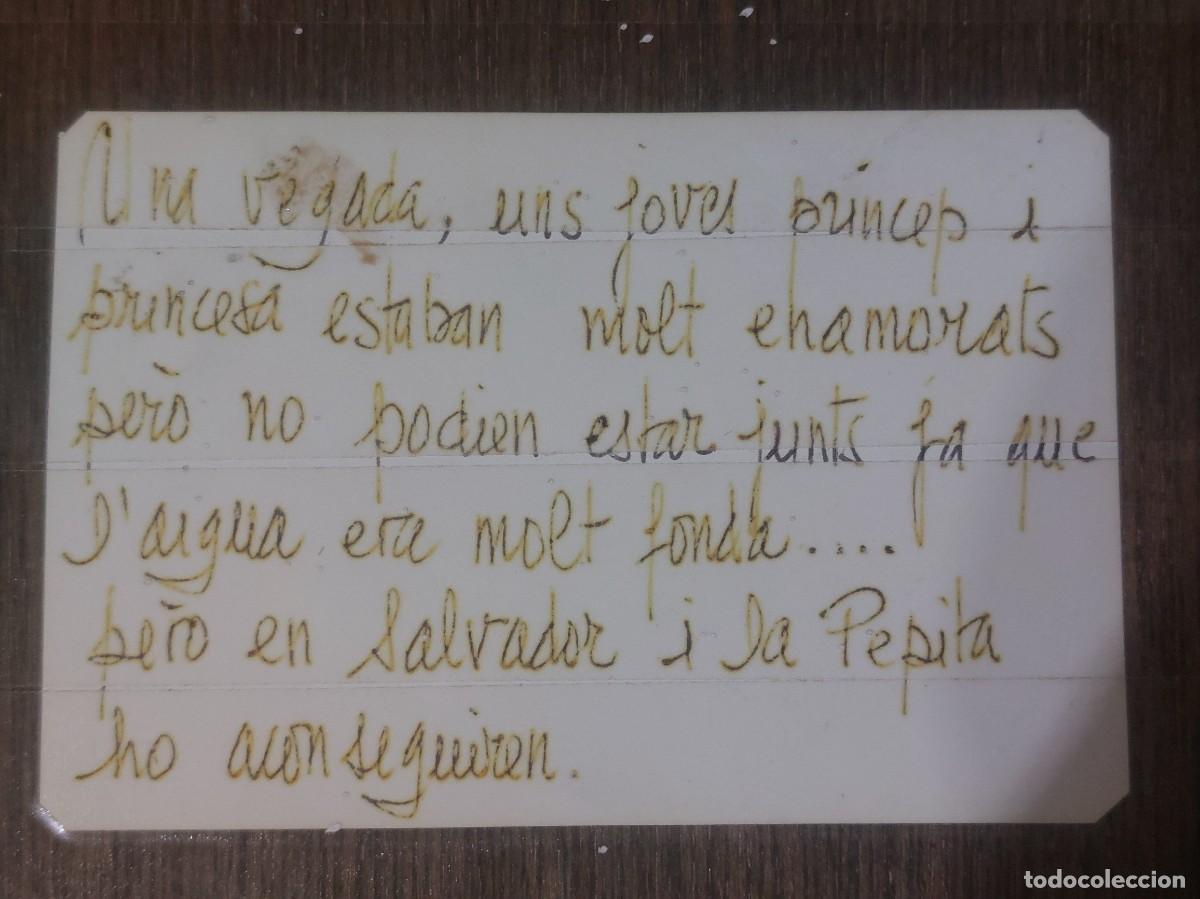 Una vegada, uns joves príncep i
princesa estaban molt enamorats
però no podien estar junts ja que
l'aigua era molt fonda....
però en Salvador i la Pepita
ho aconseguiren.
todocoleccion